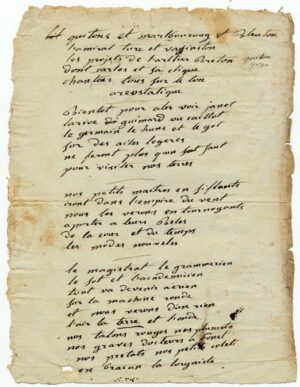 tot questons et marlbouroug et
lamiral turc et vaginston
les projets de lartlier breton
dont cartos et sa clique
chantons tous sur le ton
areostatique
Bientot pour aler voir janot
larive dugimard vu caillot
le germain le huns et le got
sur des ailes legeres
ne feront plus qun sot saut
pour visiter nos terres
nos petits maitres en
iront dans lempire du vent
nous les verons en tournoyants
aporter a leurs beles
de la cour et du temps
les modes nouveles
le magistrat le grammerien
le sot et lacademicien
tout va devenir aerien
sur la machine ronde
et nous verons dun rien
lair la terre et londe
nos talons rouges nos plumets
nos graves docteurs a bonet
nos prelats nos petits colets
en braquant la lorgniete